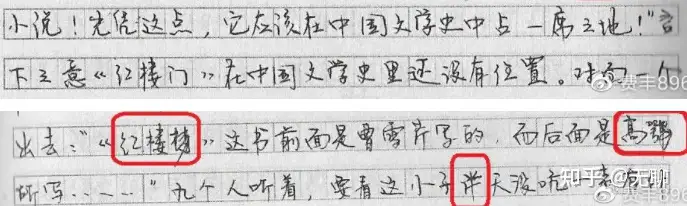 小说！光凭这点，它应该在中国文学史中占一席之地！"言
下之意《红楼门》在中国文学史里还没有位置。
费丰896
出去："《红楼梦》这书前面是曹雪芹写的，而后面是高鹗
所写……"九个人听着，要看这小子洋天没吭
知乎 @无聊
费丰896